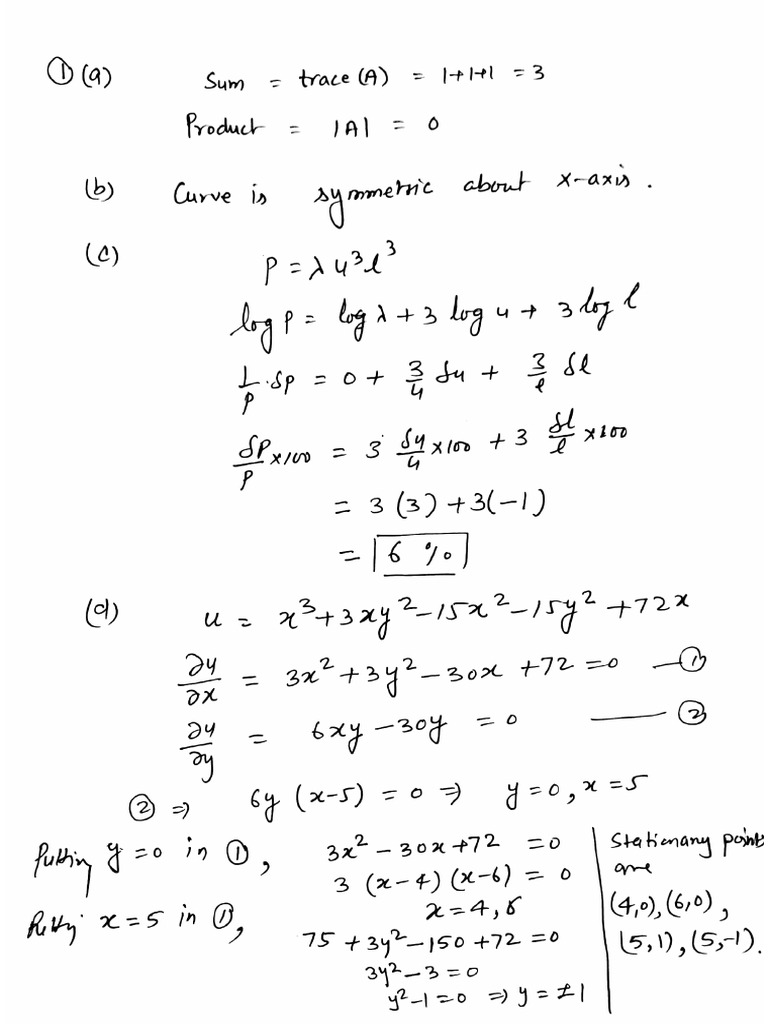 ① (a) Sum = trace(A) = 1+1+1 = 3
Product = |A| = 0
(b) Curve is symmetric about x-axis.
(c) P = λ u³ l³
log P = log λ + 3 log u + 3 log l
1/P · δP = 0 + 3/u δu + 3/l δl
δP/P ×100 = 3 δu/u ×100 + 3 δl/l ×100
= 3 (3) + 3(-1)
= 6 %
(d) u = x³ + 3xy² - 15x² - 15y² + 72x
∂u/∂x = 3x² + 3y² - 30x + 72 = 0 — ①
∂u/∂y = 6xy - 30y = 0 — ②
② ⇒ 6y (x-5) = 0 ⇒ y = 0, x = 5
Putting y = 0 in ①, 3x² - 30x + 72 = 0
3 (x-4) (x-6) = 0
x = 4, 6
x = 5 in ①, 75 + 3y² - 150 + 72 = 0
3y² - 3 = 0
y² - 1 = 0 ⇒ y = ±1
Stationary points
are
(4,0), (6,0),
(5,1), (5,-1).